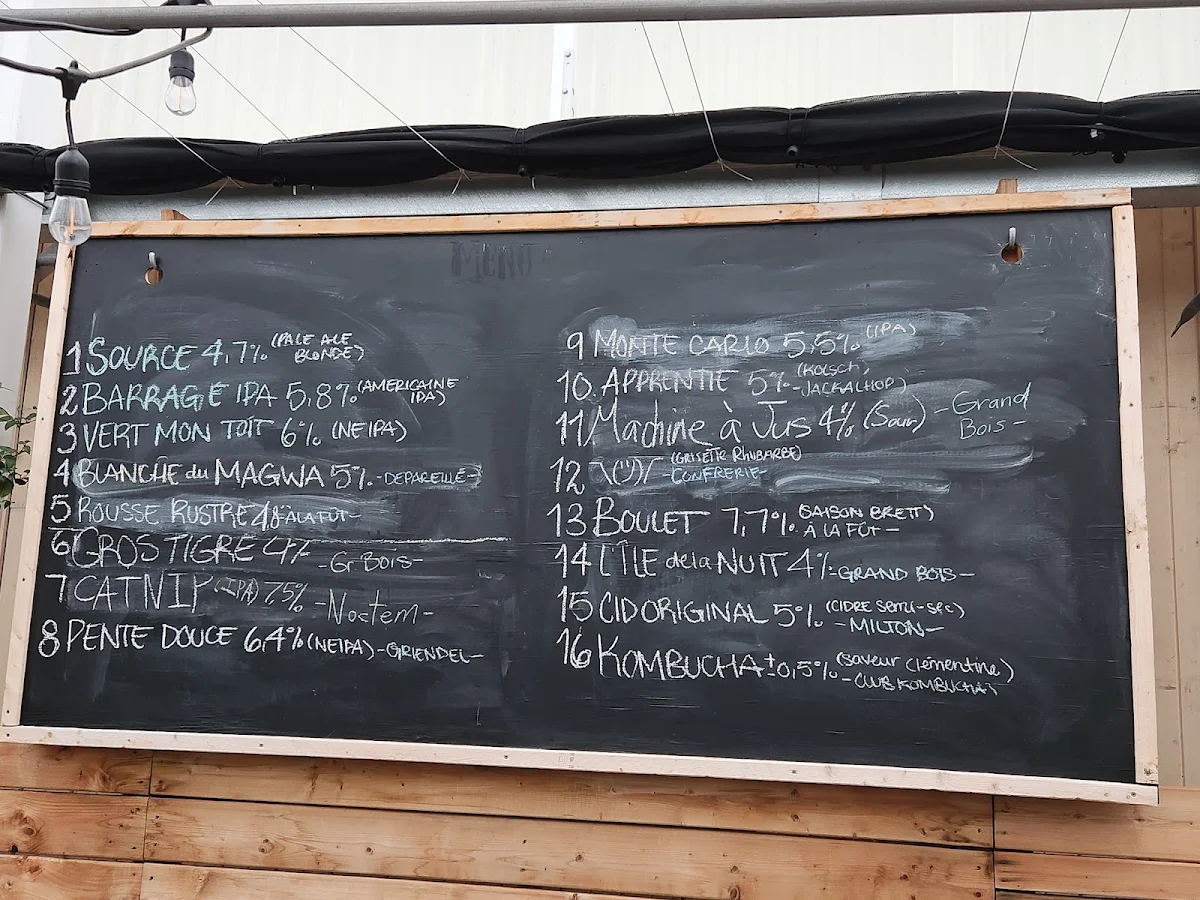 MENU
1 SOURCE 4,7% (PALE ALE BLONDE)
2 BARRAGE IPA 5,8% (AMERICAINE IPA)
3 VERT MON TOIT 6% (NEIPA)
4 BLANCHE du MAGWA 5% -DEPAREILLÉ-
5 ROUSSE RUSTRE 4,8 -À LA FÛT-
6 GROS TIGRE 4% -Gr Bois-
7 CATNIP (IPA) 7.5% -Noctem-
8 PENTE DOUCE 6,4% (NEIPA) -GRIENDEL-
9 MONTE CARLO 5,5% (IPA)
10 APPRENTIE 5% (KOLSCH, -JACKALHOP)
11 Machine à Jus 4% (Sour) -Grand Bois-
12 \(ツ)/ (GRISETTE RHUBARBE) -CONFRERIE-
13 BOULET 7,7% (SAISON BRETT) À LA FÛT-
14 L'ÎLE de la NUIT 4% -GRAND BOIS-
15 CID ORIGINAL 5% (CIDRE SEMI-SEC) -MILTON-
16 KOMBUCHA ±0,5% (saveur clémentine) -CLUB KOMBUCHA)